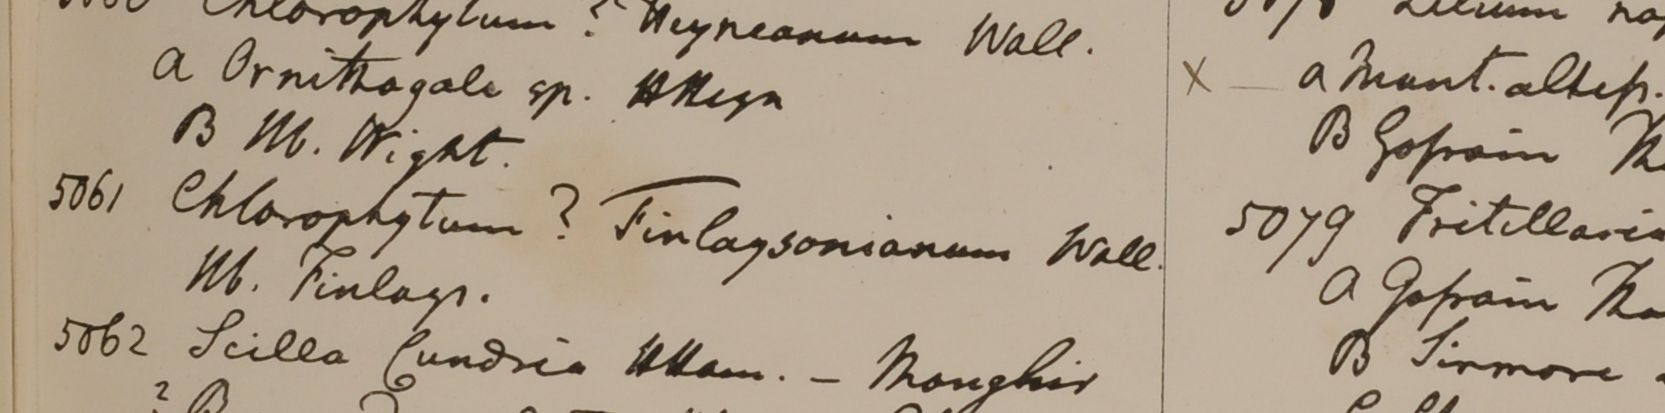 5060 Chlorophytum ? Heyneanum Wall.
a Ornithogale sp. HHeyn
B Hb. Wight.
5061 Chlorophytum ? Finlaysonianum Wall.
Hb. Finlays.
5062 Scilla Cundria HHam. – Monghir
? B
5078 Lilium
x — a Mont. altiss.
B Gossain
5079 Fritillaria
a Gossain
B Sirmore